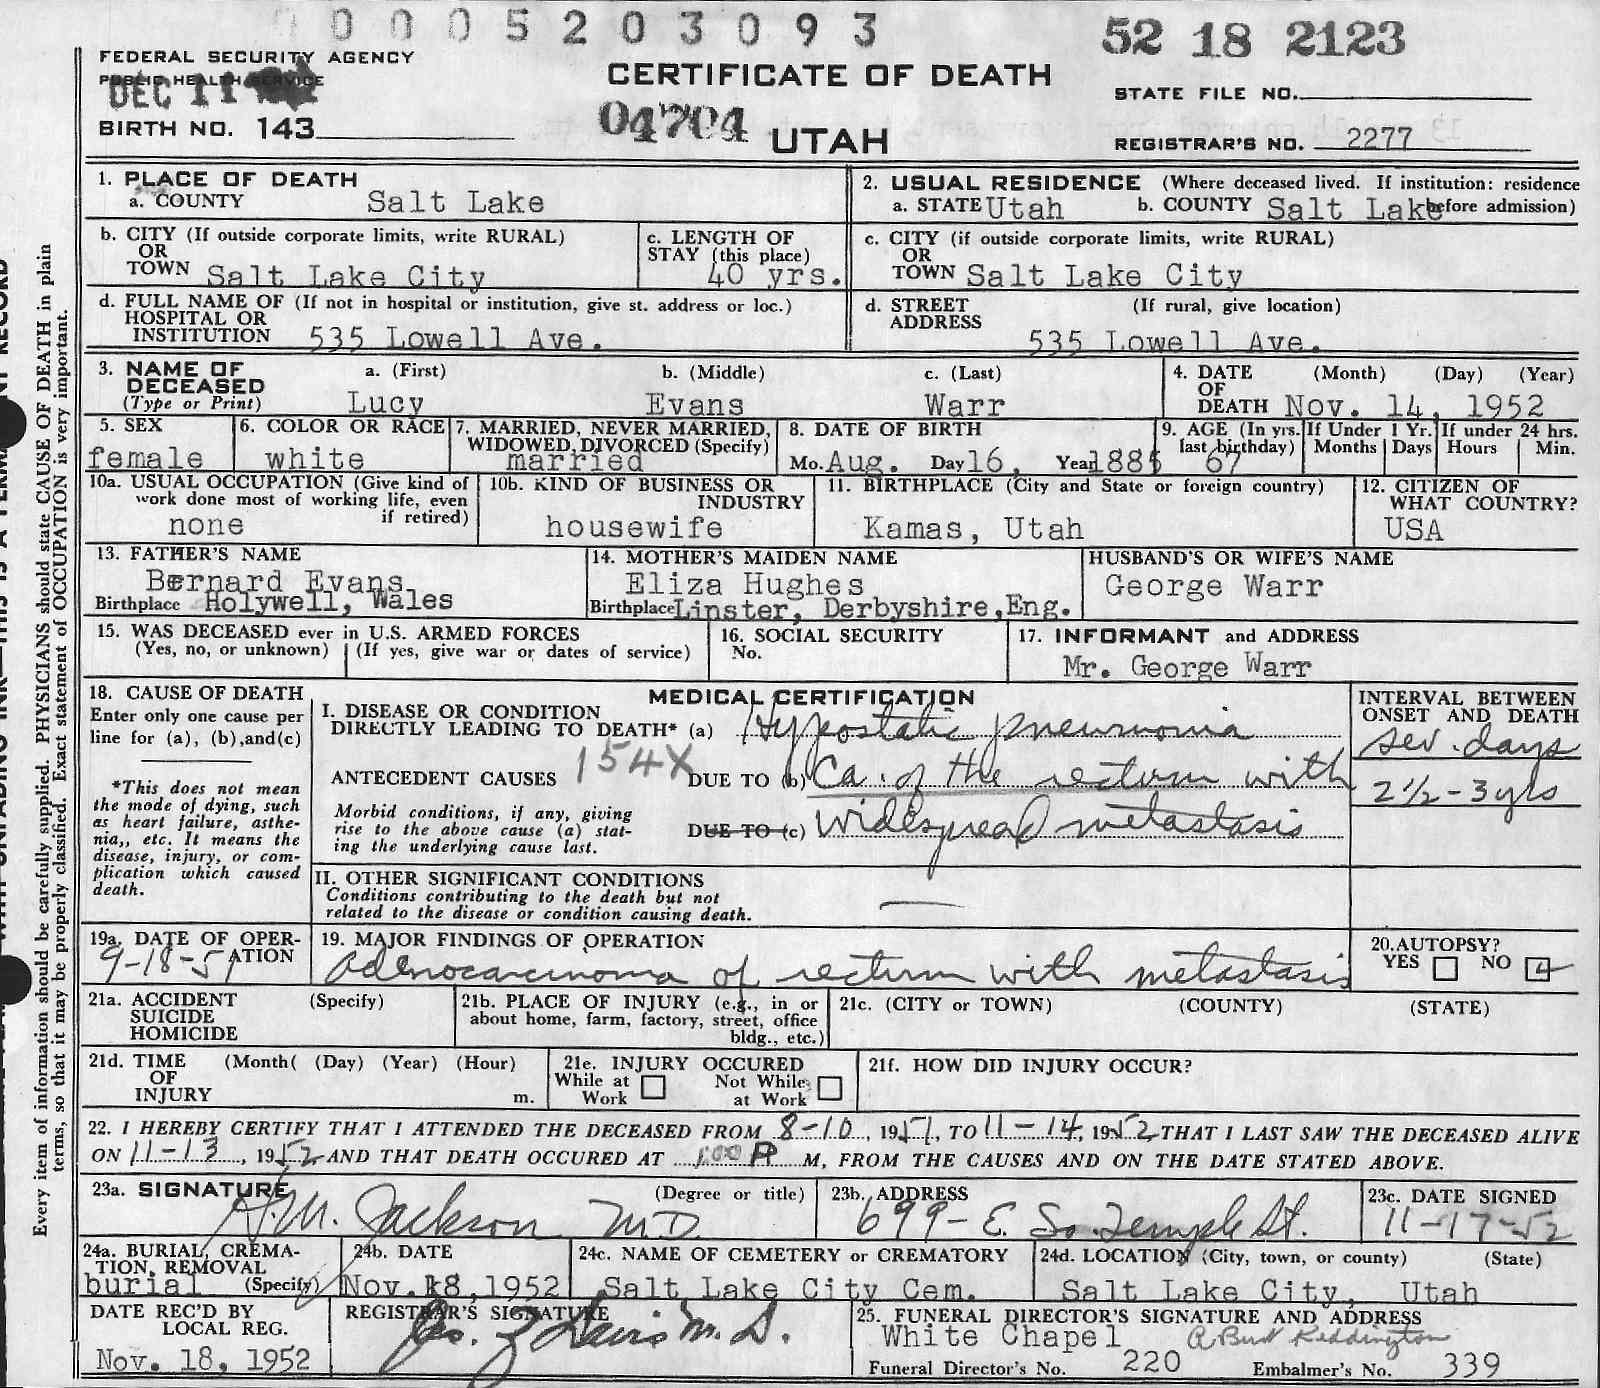 0005203093
52 18 2123
FEDERAL SECURITY AGENCY
PUBLIC HEALTH SERVICE
DEC 11
CERTIFICATE OF DEATH
STATE FILE NO.
BIRTH NO. 143
04704
UTAH
REGISTRAR'S NO. 2277
1. PLACE OF DEATH
a. COUNTY Salt Lake
2. USUAL RESIDENCE (Where deceased lived. If institution: residence before admission)
a. STATE Utah b. COUNTY Salt Lake
b. CITY (If outside corporate limits, write RURAL)
OR
TOWN Salt Lake City
c. LENGTH OF
STAY (this place)
40 yrs.
c. CITY (if outside corporate limits, write RURAL)
OR
TOWN Salt Lake City
d. FULL NAME OF (If not in hospital or institution, give st. address or loc.)
HOSPITAL OR
INSTITUTION 535 Lowell Ave.
d. STREET (If rural, give location)
ADDRESS
535 Lowell Ave.
3. NAME OF DECEASED
(Type or Print)
a. (First) b. (Middle) c. (Last)
Lucy Evans Warr
4. DATE (Month) (Day) (Year)
OF
DEATH Nov. 14, 1952
5. SEX
female
6. COLOR OR RACE
white
7. MARRIED, NEVER MARRIED,
WIDOWED, DIVORCED (Specify)
married
8. DATE OF BIRTH
Mo. Aug. Day 16, Year 1885
9. AGE (In yrs. last birthday)
67
If Under 1 Yr.
Months Days
If under 24 hrs.
Hours Min.
10a. USUAL OCCUPATION (Give kind of
work done most of working life, even
if retired)
none
10b. KIND OF BUSINESS OR
INDUSTRY
housewife
11. BIRTHPLACE (City and State or foreign country)
Kamas, Utah
12. CITIZEN OF
WHAT COUNTRY?
USA
13. FATHER'S NAME
Bernard Evans
Birthplace Holywell, Wales
14. MOTHER'S MAIDEN NAME
Eliza Hughes
Birthplace Linster, Derbyshire, Eng.
HUSBAND'S OR WIFE'S NAME
George Warr
15. WAS DECEASED ever in U.S. ARMED FORCES
(Yes, no, or unknown) (If yes, give war or dates of service)
16. SOCIAL SECURITY
No.
17. INFORMANT and ADDRESS
Mr. George Warr
18. CAUSE OF DEATH
Enter only one cause per
line for (a), (b), and (c)
*This does not mean
the mode of dying, such
as heart failure, asthe-
nia,, etc. It means the
disease, injury, or com-
plication which caused
death.
MEDICAL CERTIFICATION
I. DISEASE OR CONDITION
DIRECTLY LEADING TO DEATH* (a) Hypostatic pneumonia
ANTECEDENT CAUSES 154X DUE TO (b) Ca. of the rectum with
Morbid conditions, if any, giving
rise to the above cause (a) stat-
ing the underlying cause last.
DUE TO (c) Widespread metastasis
INTERVAL BETWEEN
ONSET AND DEATH
sev. days
2 1/2 - 3 yrs
II. OTHER SIGNIFICANT CONDITIONS
Conditions contributing to the death but not
related to the disease or condition causing death.
19a. DATE OF OPER-
ATION
9-18-51
19. MAJOR FINDINGS OF OPERATION
adenocarcinoma of rectum with metastasis
20. AUTOPSY?
YES NO
21a. ACCIDENT (Specify)
SUICIDE
HOMICIDE
21b. PLACE OF INJURY (e.g., in or
about home, farm, factory, street, office
bldg., etc.)
21c. (CITY or TOWN) (COUNTY) (STATE)
21d. TIME (Month( (Day) (Year) (Hour)
OF
INJURY m.
21e. INJURY OCCURED
While at Work Not While at Work
21f. HOW DID INJURY OCCUR?
22. I HEREBY CERTIFY THAT I ATTENDED THE DECEASED FROM 8-10, 1951, TO 11-14, 1952 THAT I LAST SAW THE DECEASED ALIVE
ON 11-13, 1952 AND THAT DEATH OCCURED AT 1:00 P M, FROM THE CAUSES AND ON THE DATE STATED ABOVE.
23a. SIGNATURE (Degree or title)
H.M. Jackson M.D.
23b. ADDRESS
699 - E. So Temple St.
23c. DATE SIGNED
11-17-52
24a. BURIAL, CREMA-
TION, REMOVAL
burial (Specify)
24b. DATE
Nov. 18, 1952
24c. NAME OF CEMETERY or CREMATORY
Salt Lake City Cem.
24d. LOCATION (City, town, or county) (State)
Salt Lake City, Utah
DATE REC'D BY
LOCAL REG.
Nov. 18, 1952
REGISTRAR'S SIGNATURE
M.D.
25. FUNERAL DIRECTOR'S SIGNATURE AND ADDRESS
White Chapel A Bud Reddington
Funeral Director's No. 220 Embalmer's No. 339
Every item of information should be carefully supplied. PHYSICIANS should state CAUSE OF DEATH in plain
terms, so that it may be properly classified. Exact statement of OCCUPATION is very important.